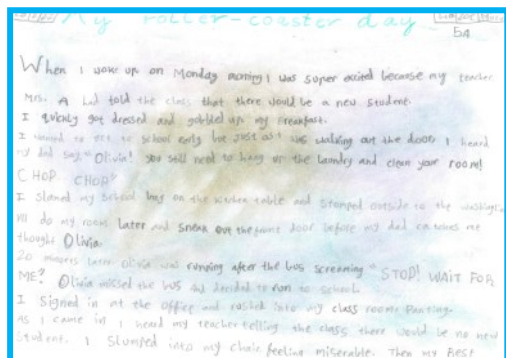 My roller-coaster day
5A
When I woke up on Monday morning I was super excited because my teacher
Mrs. A had told the class that there would be a new student.
I quickly got dressed and gobbled up my breakfast.
I wanted to get to school early but just as I was walking out the door I heard
my dad say, "Olivia! you still need to hang up the laundry and clean your room!
CHOP CHOP"
I slamed my school bag on the kitchen table and stomped outside to the
I'll do my room later and sneak out the front door before my dad catches me
thought Olivia.
20 minutes later Olivia was running after the bus screaming "STOP! WAIT FOR
ME? Olivia missed the bus and decided to run to school.
I signed in at the office and rushed into my class room panting.
As I came in I heard my teacher telling the class there would be no new
student. I slumped into my chair feeling miserable. Then my Best